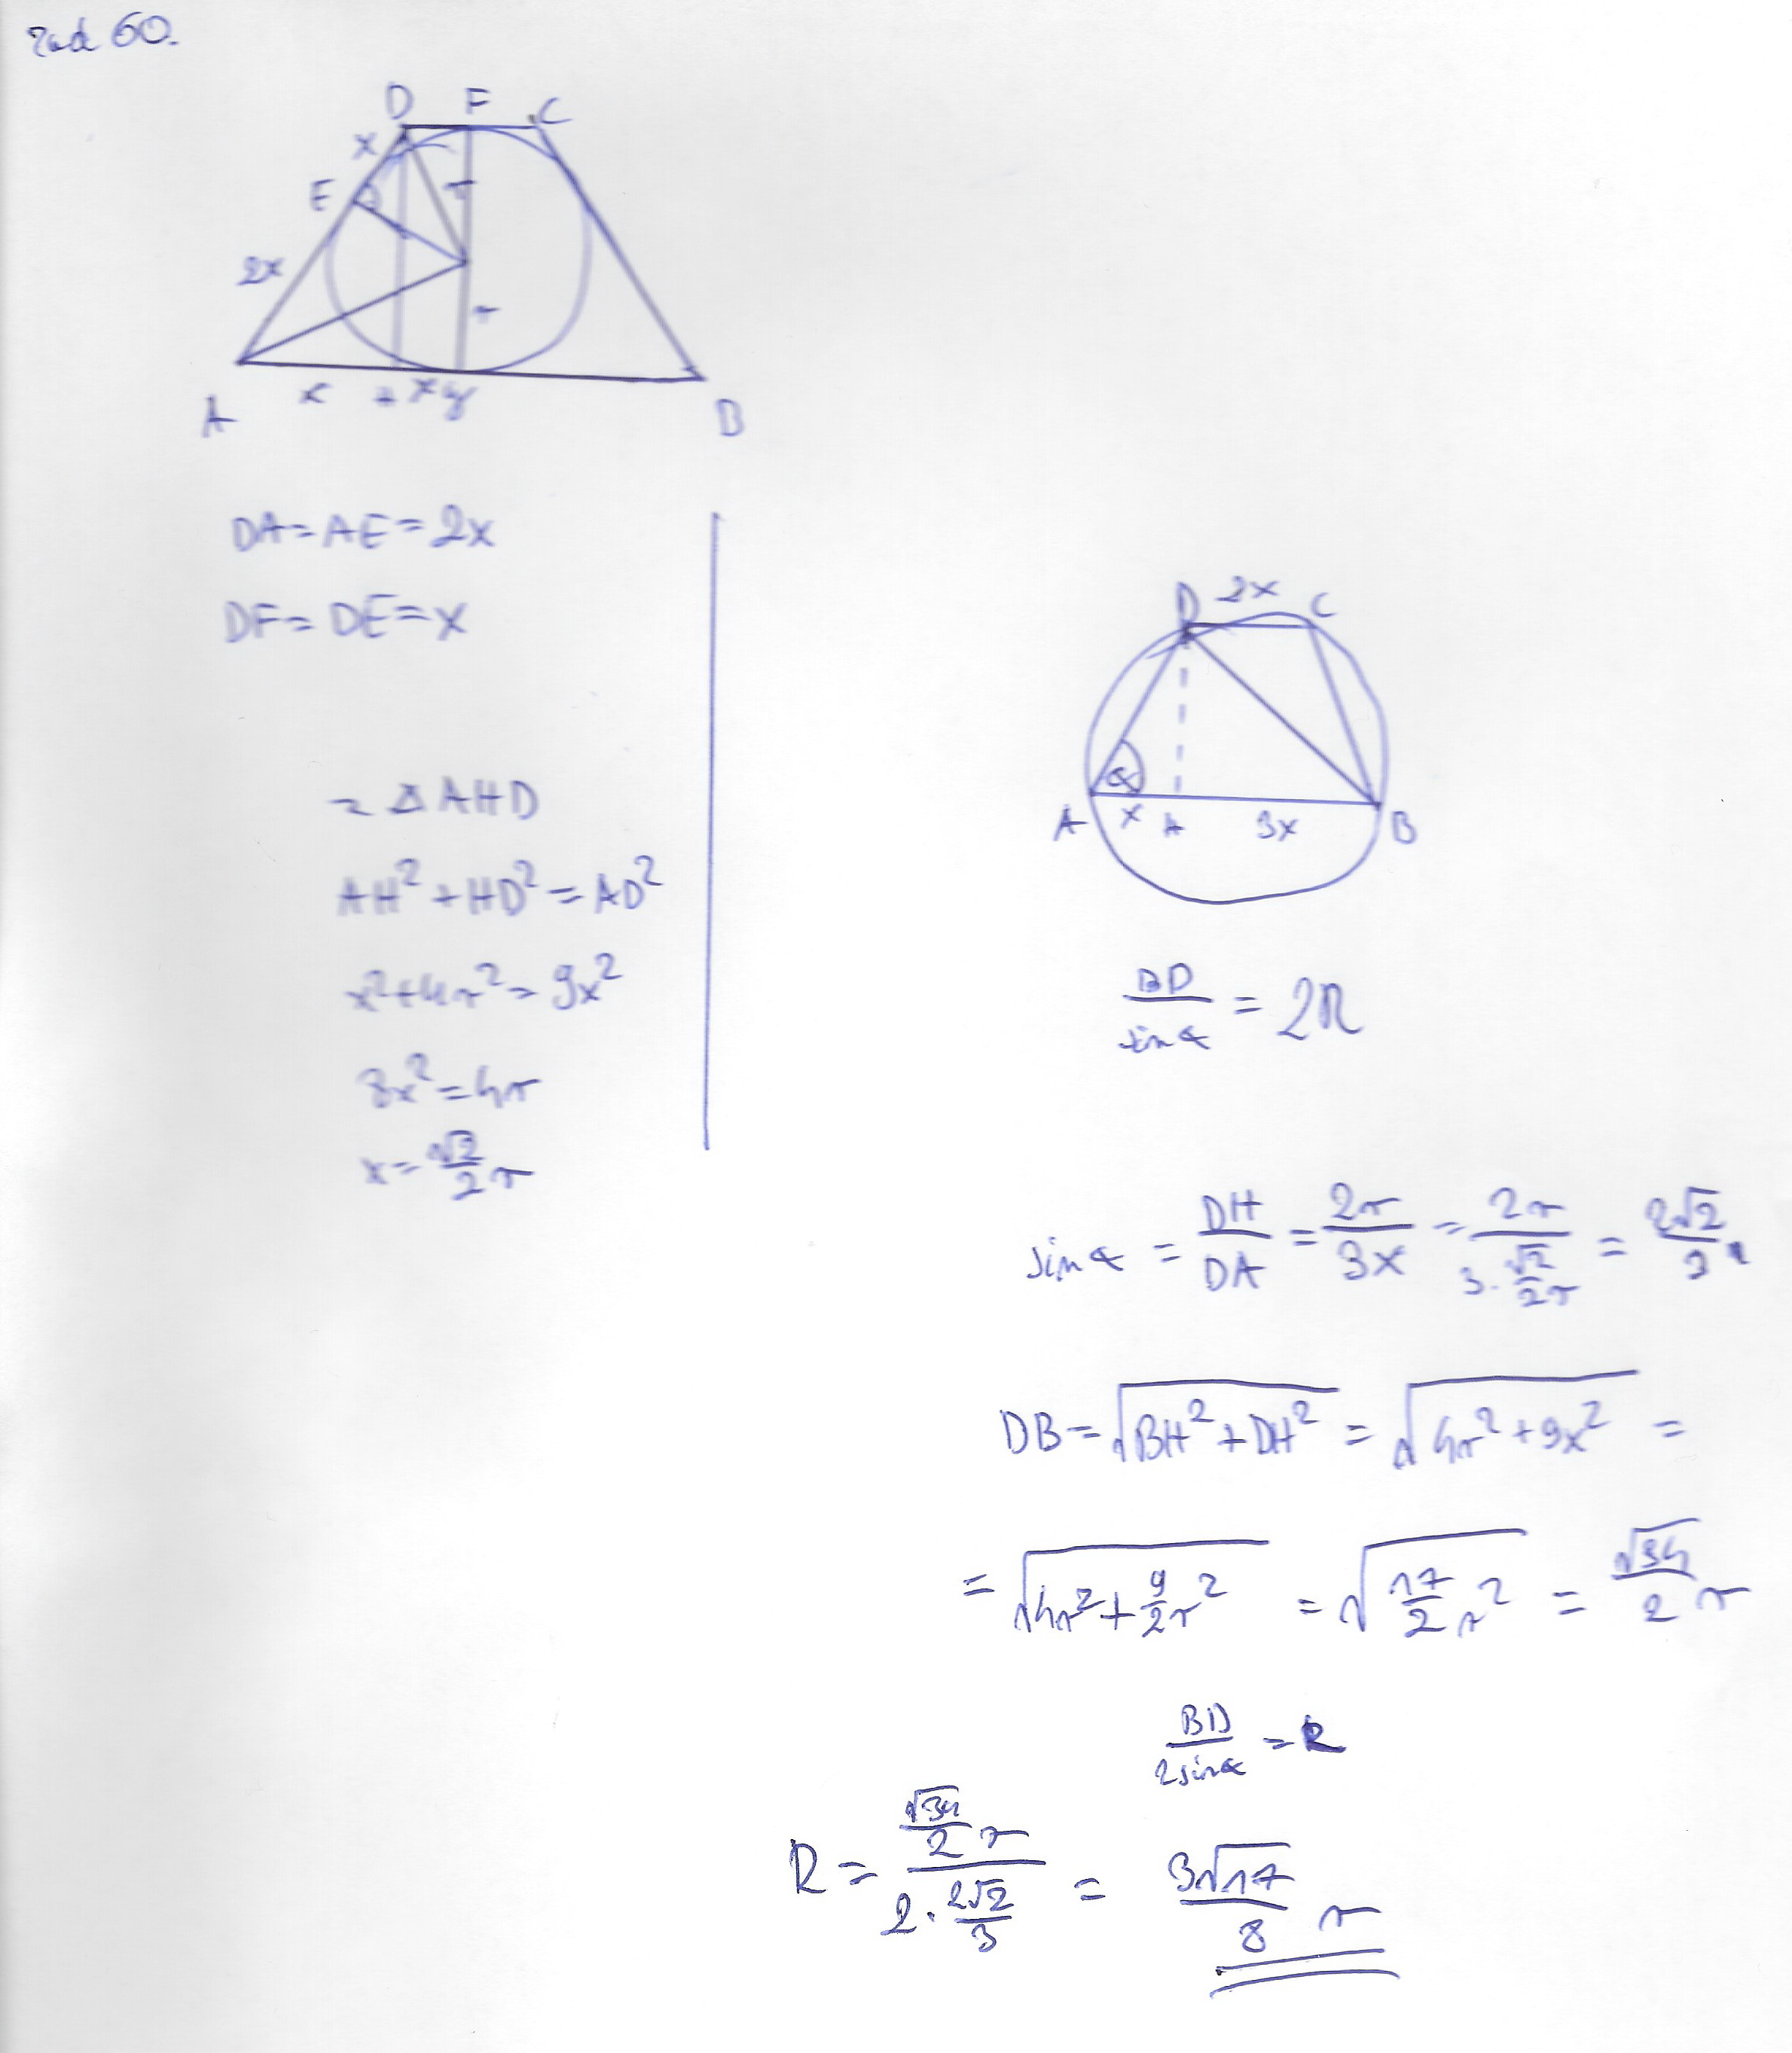 Zad 60.
D F C
x
E r
2x
r
x + x y
A B
DA = AE = 2x
DF = DE = x
z Δ AHD
AH² + HD² = AD²
x² + 4r² = 9x²
8x² = 4r
x = √2/2 r
D 2x C
α
A x H 3x B
BD/sinα = 2R
sinα = DH/DA = 2r/3x = 2r/(3·√2/2 r) = 2√2/3
DB = √(BH² + DH²) = √(4r² + 9x²) =
= √(4r² + 9/2 r²) = √(17/2 r²) = √34/2 r
BD/2sinα = R
R = (√34/2 r)/(2·2√2/3) = 3√17/8 r